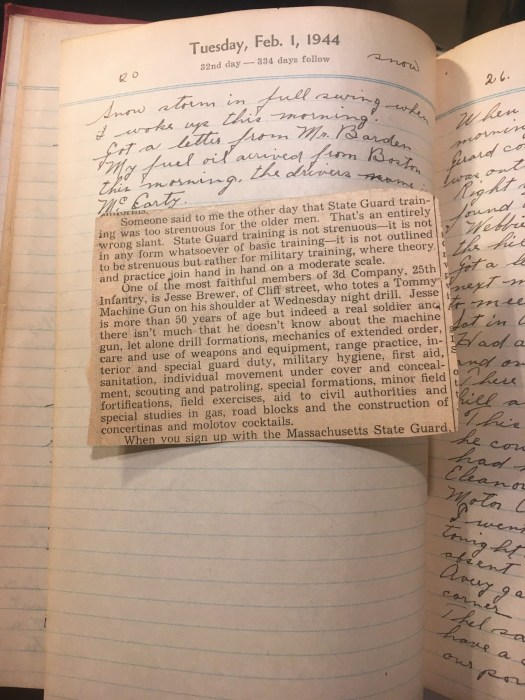 Tuesday, Feb. 1, 1944
32nd day — 334 days follow
20
snow
Snow storm in full swing when
I woke up this morning.
Got a letter from Mr. Barden
My fuel oil arrived from Boston
this morning, the drivers name
Mc Carty.
Someone said to me the other day that State Guard train-
ing was too strenuous for the older men. That's an entirely
wrong slant. State Guard training is not strenuous—it is not
in any form whatsoever of basic training—it is not outlined
to be strenuous but rather for military training, where theory
and practice join hand in hand on a moderate scale.
One of the most faithful members of 3d Company, 25th
Infantry, is Jesse Brewer, of Cliff street, who totes a Tommy
Machine Gun on his shoulder at Wednesday night drill. Jesse
is more than 50 years of age but indeed a real soldier and
there isn't much that he doesn't know about the machine
gun, let alone drill formations, mechanics of extended order,
care and use of weapons and equipment, range practice, in-
terior and special guard duty, military hygiene, first aid,
sanitation, individual movement under cover and conceal-
ment, scouting and patroling, special formations, minor field
fortifications, field exercises, aid to civil authorities and
special studies in gas, road blocks and the construction of
concertinas and molotov cocktails.
When you sign up with the Massachusetts State Guard,
26.
When
Guard co
was out
Right
found
Webbie
the hi
Got a le
next m
to mee
Lot in
Had a
and on
There
hill a
This
he cou
had
Eleano
Motor C
I went
tonight
absent
Avery ga
corner
Thel sa
have a
our pow